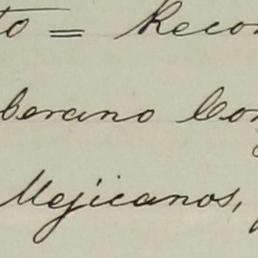 to = Recon
berano Con
Mejicanos,